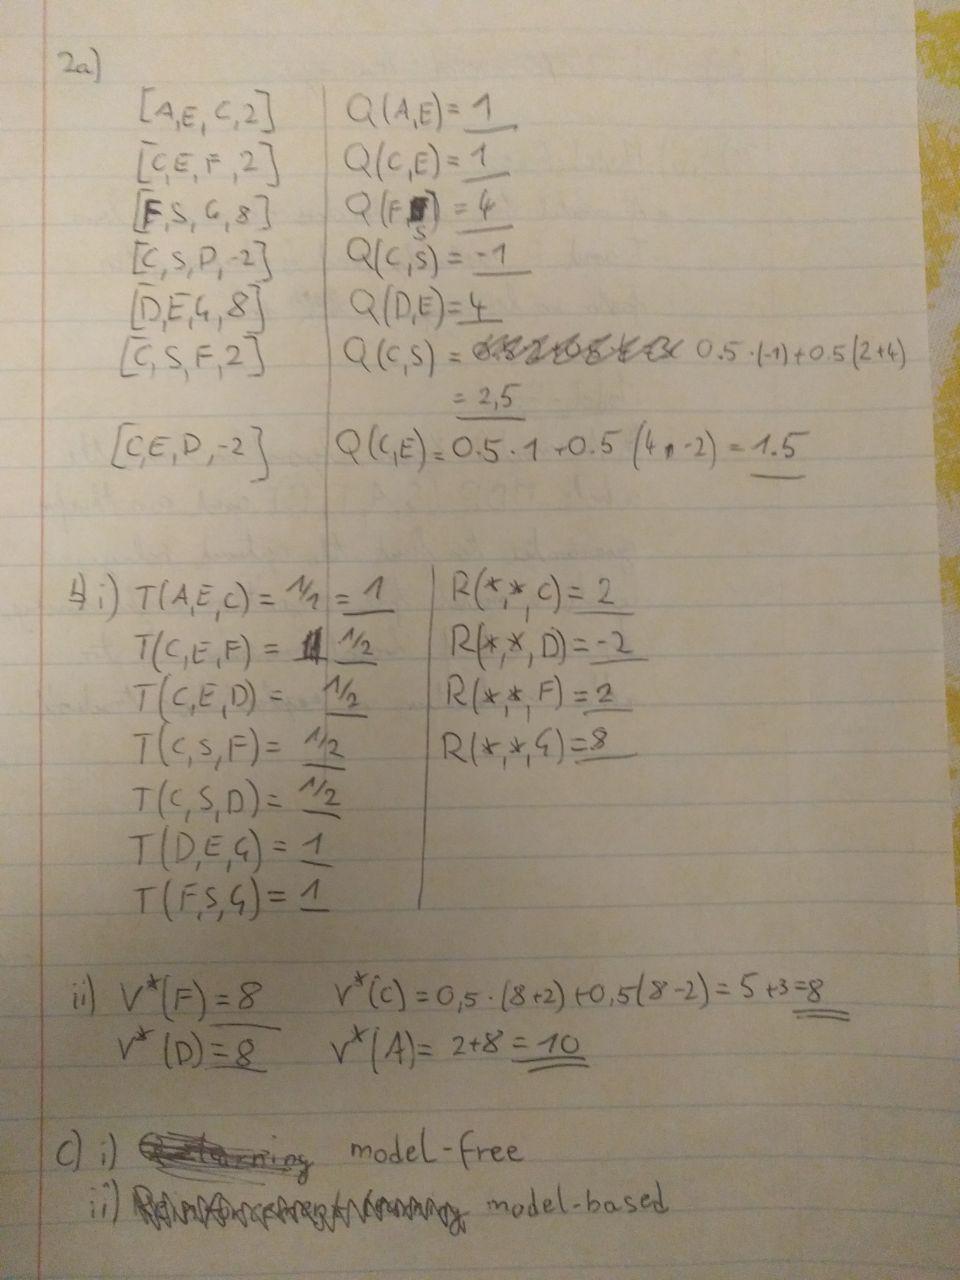 2a)
[A,E,C,2] Q(A,E)= 1
[C,E,F,2] Q(C,E)= 1
[F,S,G,8] Q(F,S) = 4
[C,S,D,-2] Q(C,S) = -1
[D,E,G,8] Q(D,E)= 4
[C,S,F,2] Q(C,S) = 0.5·(-1)+0.5(2+4)
= 2,5
[C,E,D,-2] Q(C,E)= 0.5·1 +0.5 (4, -2) = 1.5
b i) T(A,E,C) = 1/1 = 1 R(*,*,C)= 2
T(C,E,F) = 1/2 R(*,*,D)= -2
T(C,E,D) = 1/2 R(*,*,F)= 2
T(C,S,F)= 1/2 R(*,*,G)=8
T(C,S,D)= 1/2
T(D,E,G)= 1
T(F,S,G)= 1
ii) V*(F)= 8 V*(C) = 0,5·(8+2)+0,5(8-2)= 5+3=8
V*(D)= 8 V*(A)= 2+8 = 10
c) i) model-free
ii) model-based